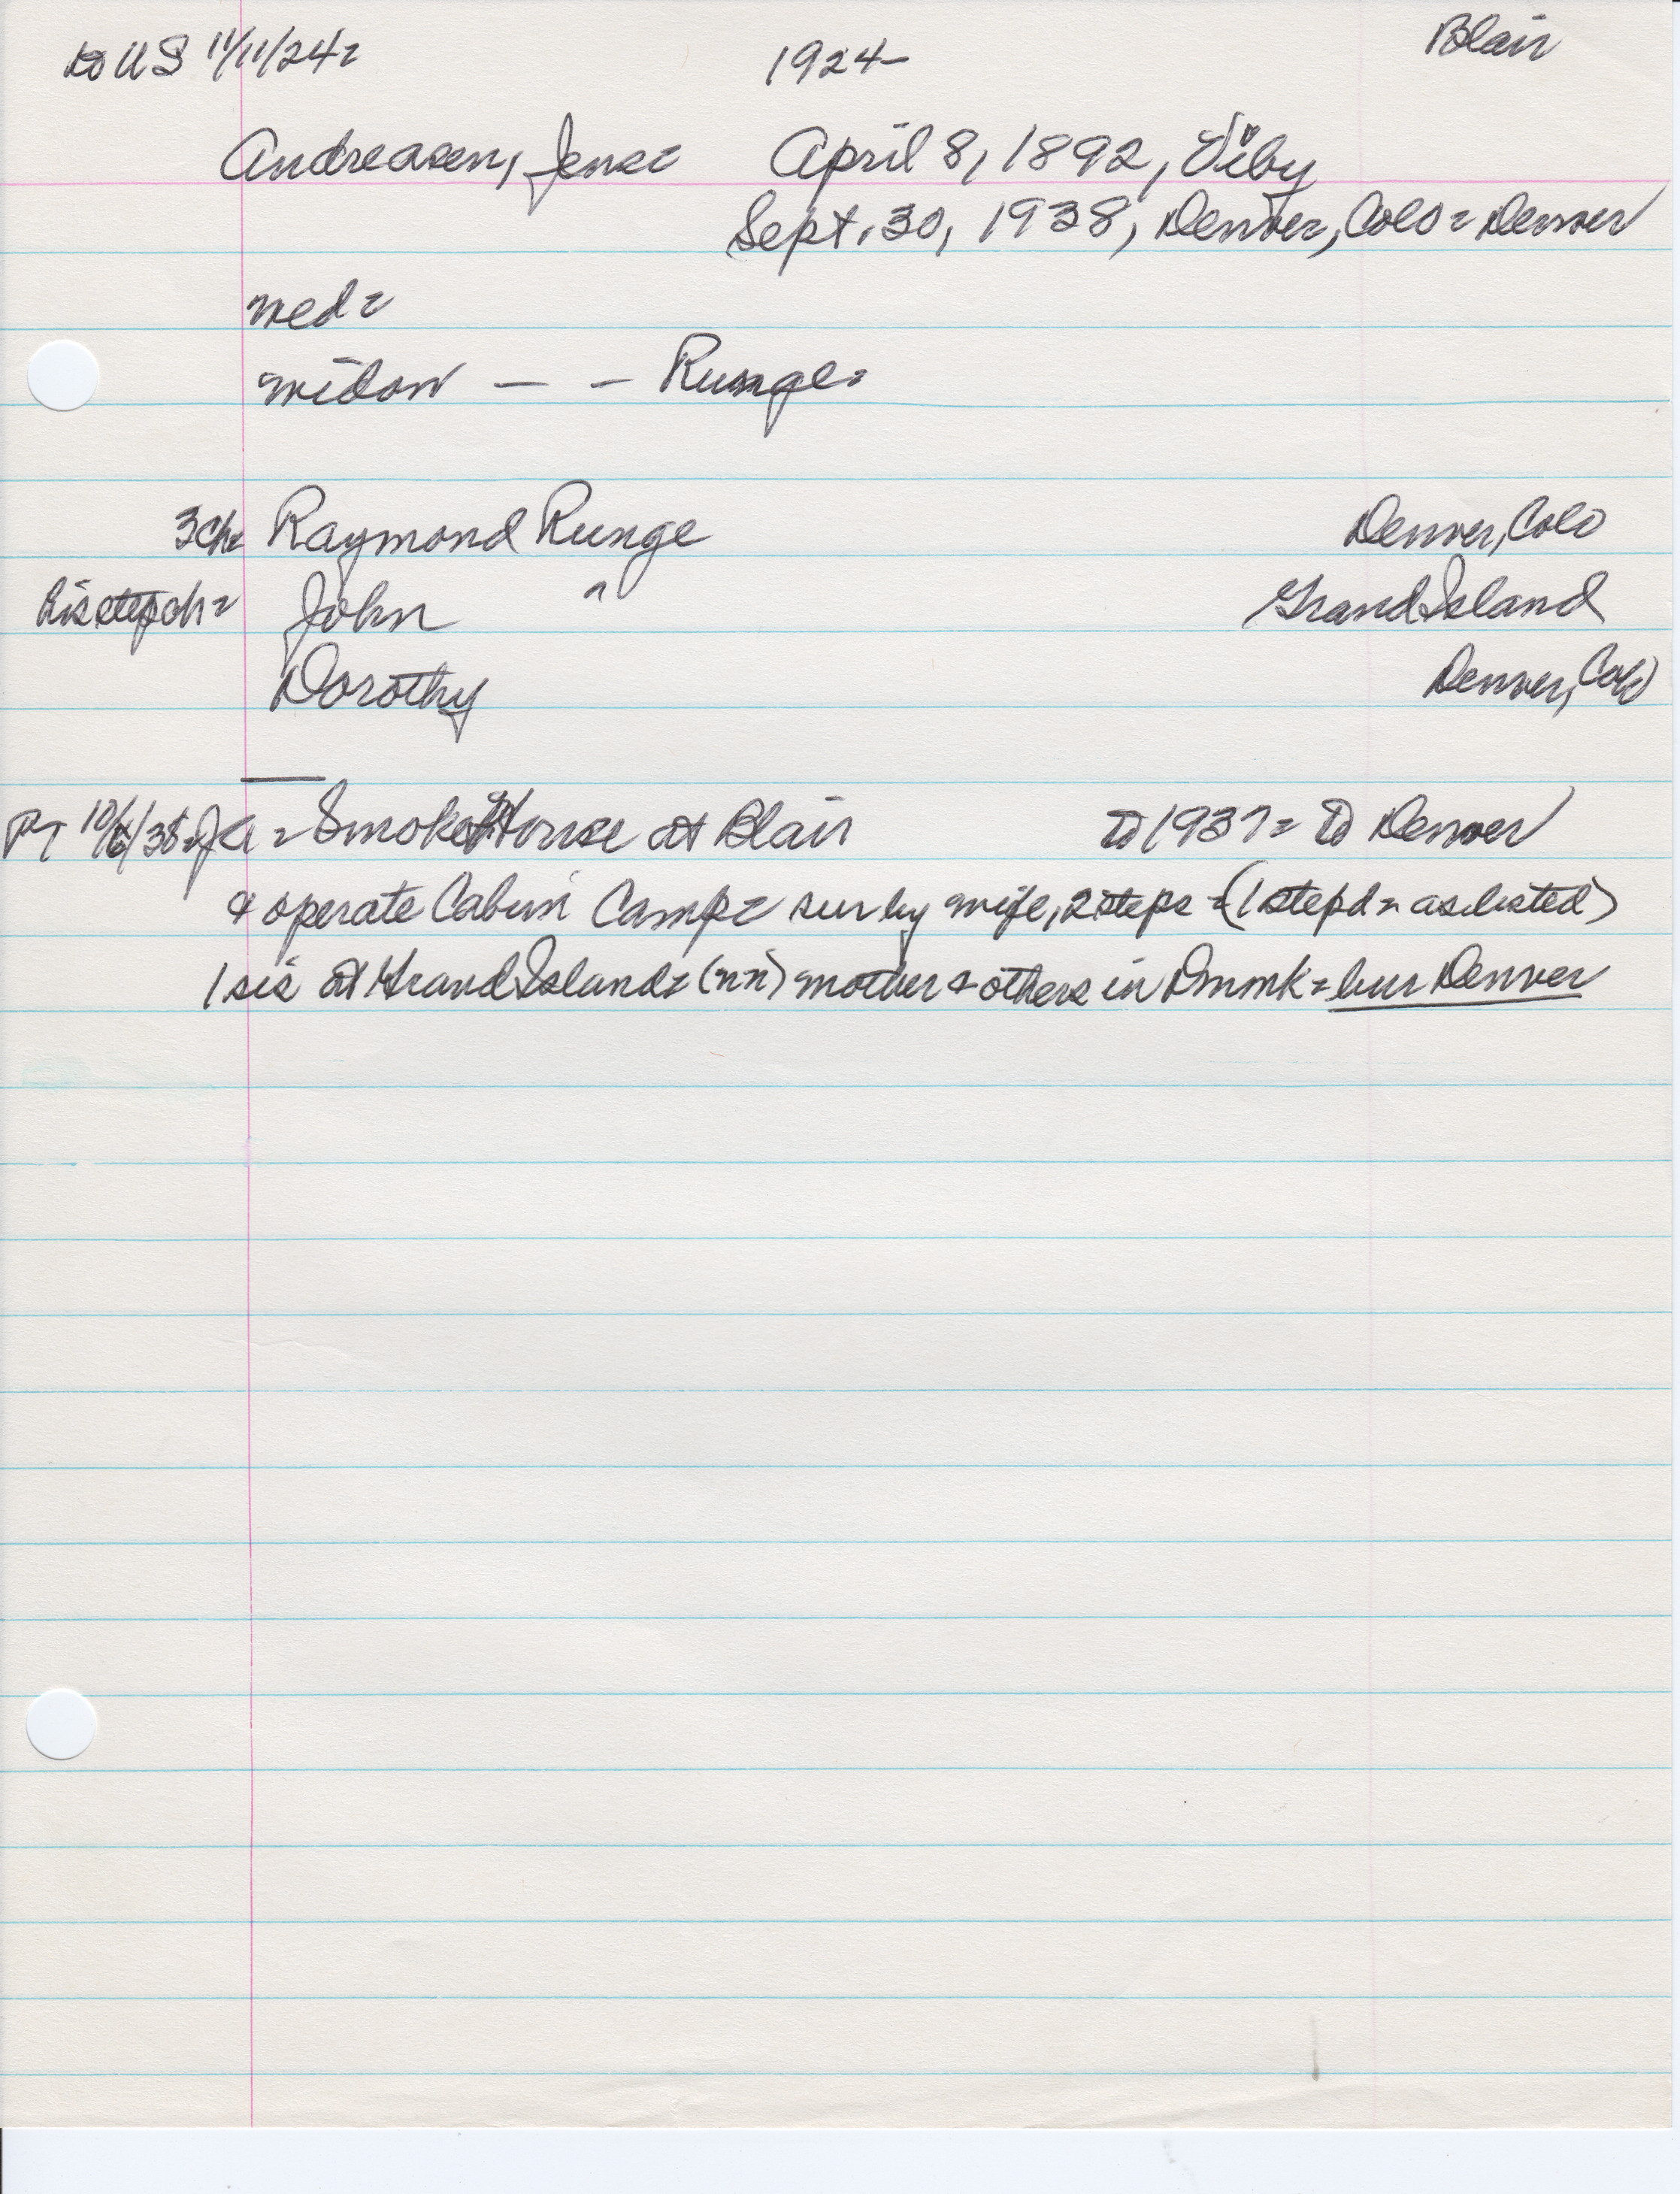 to US 11/11/24= 1924- Blair
Andreasen, Jens= April 8, 1892, Viby
Sept. 30, 1938, Denver, Colo= Denver
wed=
widow — — Runge=
3ch= Raymond Runge Denver, Colo
his stepch= John " Grand Island
Dorothy Denver, Colo
PT 10/6/38= JA = Smoke House at Blair to 1937= to Denver
& operate Cabin Camp= sur by wife, 2 steps = (1 stepd = as listed)
1 sis at Grand Island= (nn) mother & others in Dnmk= bur Denver